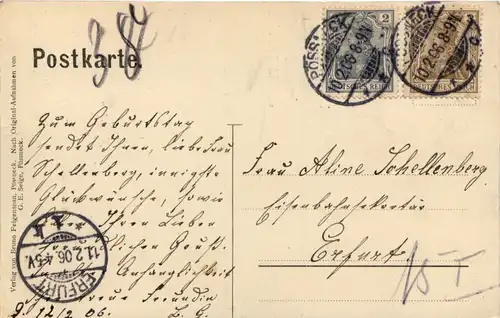 Postkarte.
38
PÖSSNECK
10.2.06. 8-9N
2
DEUTSCHES REICH
PÖSSNECK
10.2.06. 8-9N
DEUTSCHES REICH
Verlag von Bruno Feigenspan, Poessneck. Nach Original-Aufnahmen von
G. E. Seige, Pössneck.
Zum Geburtstag
sendet Ihnen, liebe Frau
Schellenberg, innigste
Glückwünsche, sowie
Ihren Lieben
herzlichen Gruß.
Anhänglichkeit
treue Freundin
10/2 06.
ERFURT
11.2.06. 4-5V.
Frau Aline Schellenberg
Eisenbahnsekretär
Erfurt.